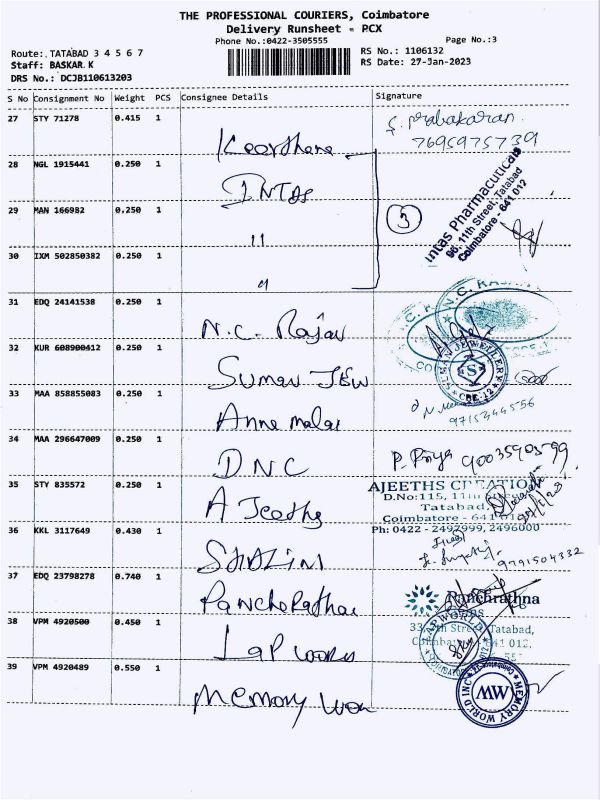 THE PROFESSIONAL COURIERS, Coimbatore
Delivery Runsheet - PCX
Phone No.:0422-3505555 Page No.:3
Route: TATABAD 3 4 5 6 7 RS No.: 1106132
Staff: BASKAR K RS Date: 27-Jan-2023
DRS No.: DCJB110613203
S No Consignment No Weight PCS Consignee Details Signature
27 STY 71278 0.415 1 Keerthana S. Prabakaran
7695975739
28 NGL 1915441 0.250 1 INTAS
29 MAN 166982 0.250 1 11 3
Intas Pharmaceuticals
96, 11th Street, Tatabad
Coimbatore - 641 012
30 IXM 502850382 0.250 1 11
31 EDQ 24141538 0.250 1 N.C. Rajan
32 KUR 608900412 0.250 1 Suman JEW
SUMAN JEWELLERY
S
CBE-12
33 MAA 858855083 0.250 1 Annemalai
9715344556
34 MAA 296647009 0.250 1 DNC P. Priya 9003590599
35 STY 835572 0.250 1 AJeeths
AJEETHS CREATION
D.No:115, 11th
Tatabad,
Coimbatore - 641 012
Ph: 0422 - 2497999, 2496000
36 KKL 3117649 0.430 1 SHALINI
9791504332
37 EDQ 23798278 0.740 1 Pancharathna
Panchrathna
38 VPM 4920500 0.450 1 Lap world
Street, Tatabad,
641 012.
LAP WORLD
39 VPM 4920489 0.550 1 Memory Wor
MEMORY WORLD INC
MW